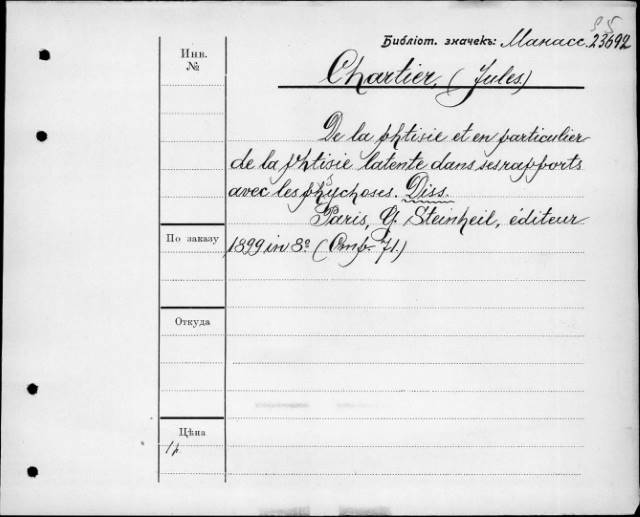 35
Библіот. значекъ: Манасс. 23692
Инв.
№
Chartier, (Jules.)
De la phtisie et en particulier
de la phtisie latente dans ses rapports
avec les psychoses. Diss.
Paris, G. Steinheil, éditeur
По заказу
1899 in 8º (Стр. 71.)
Откуда
Цѣна
1 р